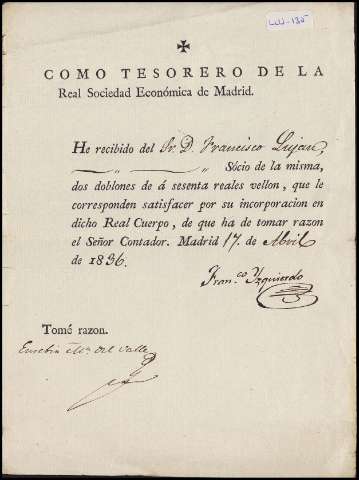 ✠
COMO TESORERO DE LA
Real Sociedad Económica de Madrid.
He recibido del Sr. D. Francisco Lujan,
„ „ Sócio de la misma,
dos doblones de á sesenta reales vellon, que le
corresponden satisfacer por su incorporacion en
dicho Real Cuerpo, de que ha de tomar razon
el Señor Contador. Madrid 17. de Abril
de 1836.
Fran.co Yzquierdo
Tomé razon.
Eusebio Mª. del Valle